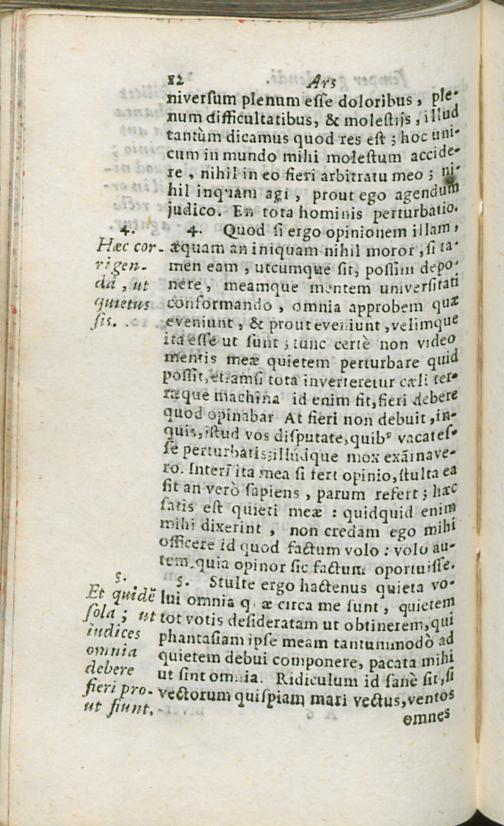 12 Ars
niversum plenum esse doloribus, ple-
num difficultatibus, & molestijs, illud
tantùm dicamus quod res est; hoc uni-
cum in mundo mihi molestum accide-
re, nihil in eo fieri arbitratu meo; ni-
hil inquam agi, prout ego agendum
judico. En tota hominis perturbatio.
4.
Hæc cor-
rigen-
da, ut
quietus
sis.
4. Quod si ergo opinionem illam,
æquam an iniquam nihil moror, si ta-
men eam, utcumque sit, possim depo-
nere, meamque mentem universitati
conformando, omnia approbem quæ
eveniunt, & prout eveniunt, velimque
ita esse ut sunt; tunc certè non video
mentis meæ quietem perturbare quid
possit, etiamsi tota inverteretur cæli ter-
ræque machina id enim fit, fieri debere
quod opinabar At fieri non debuit, in-
quis, istud vos disputate, quibꝰ vacat es-
se perturbatis; illudque mox exāinave-
ro. Interī ita mea si fert opinio, stulta ea
sit an verò sapiens, parum refert; hæc
satis est quieti meæ: quidquid enim
mihi dixerint, non credam ego mihi
officere id quod factum volo: volo au-
tem quia opinor sic factum oportuisse.
5.
Et quidē
sola; ut
iudices
omnia
debere
fieri pro-
ut fiunt.
5. Stulte ergo hactenus quieta vo-
lui omnia q æ circa me sunt, quietem
tot votis desideratam ut obtinerem, qui
phantasiam ipse meam tantummodò ad
quietem debui componere, pacata mihi
ut sint omnia. Ridiculum id sanè sit, si
vectorum quispiam mari vectus, ventos
omnes